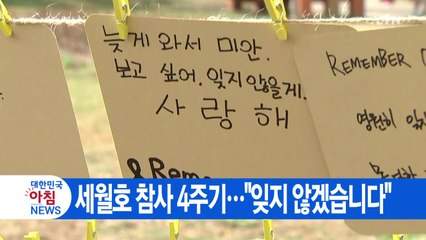 늦게 와서 미안.
보고 싶어. 잊지 않을게.
사랑해
&Reme
REMEMBER
영원히 잊지
YTN
대한민국
아침
NEWS
세월호 참사 4주기…"잊지 않겠습니다"